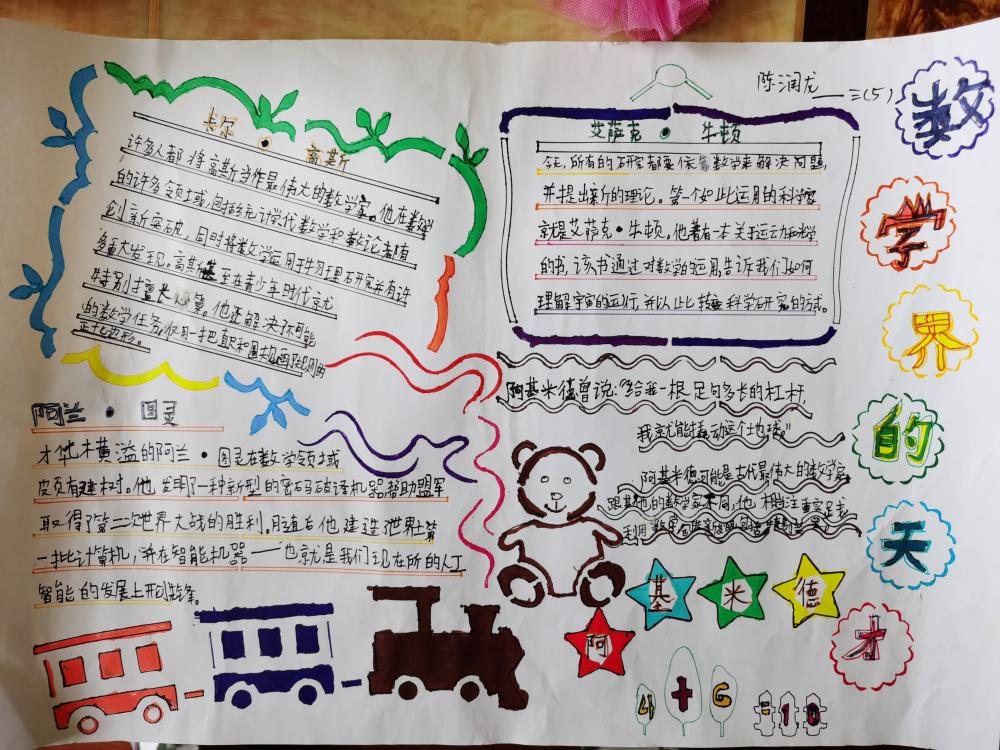 陈润龙 三(5)
数学界的天才
卡尔 • 高斯
许多人都将高斯当作最伟大的数学家。他在数学
的许多领域,包括统计学代数学和数论者有
创新突破,同时将数学运用于物理研究并有许
多重大发现。高其甚至在青少年时代京尤
特别擅长算。他还解决了不可能
的数学任务,使用一把直尺和圆规画了规则的
正七边形。
艾萨克 • 牛顿
所有的研究都要依靠数学来解决问题,
并提出新的理论。第一个如此运用的科学家
就是艾萨克•牛顿。他著有一本关于运动和光学
的书,该书通过对数学的运用,告诉我们如何
理解宇宙的运行,并以此转科学研究的方式。
阿兰 • 图灵
才华横溢的阿兰•图灵在数学领域
皮页有建树。他发明了一种新型的密码破译机器帮助盟军
取得了第二次世界大战的胜利,随后他建造世界上第
一批计算机,并在智能机器——也就是我们现在所的人工
智能的发展上开创先锋。
阿基米德曾说:“给我一根足句多长的杠杆,
我就能撬动这个地球。”
阿基米德可能是古代最伟大的数学家,
跟其他的数学家不同,他
阿基米德
4+6=10